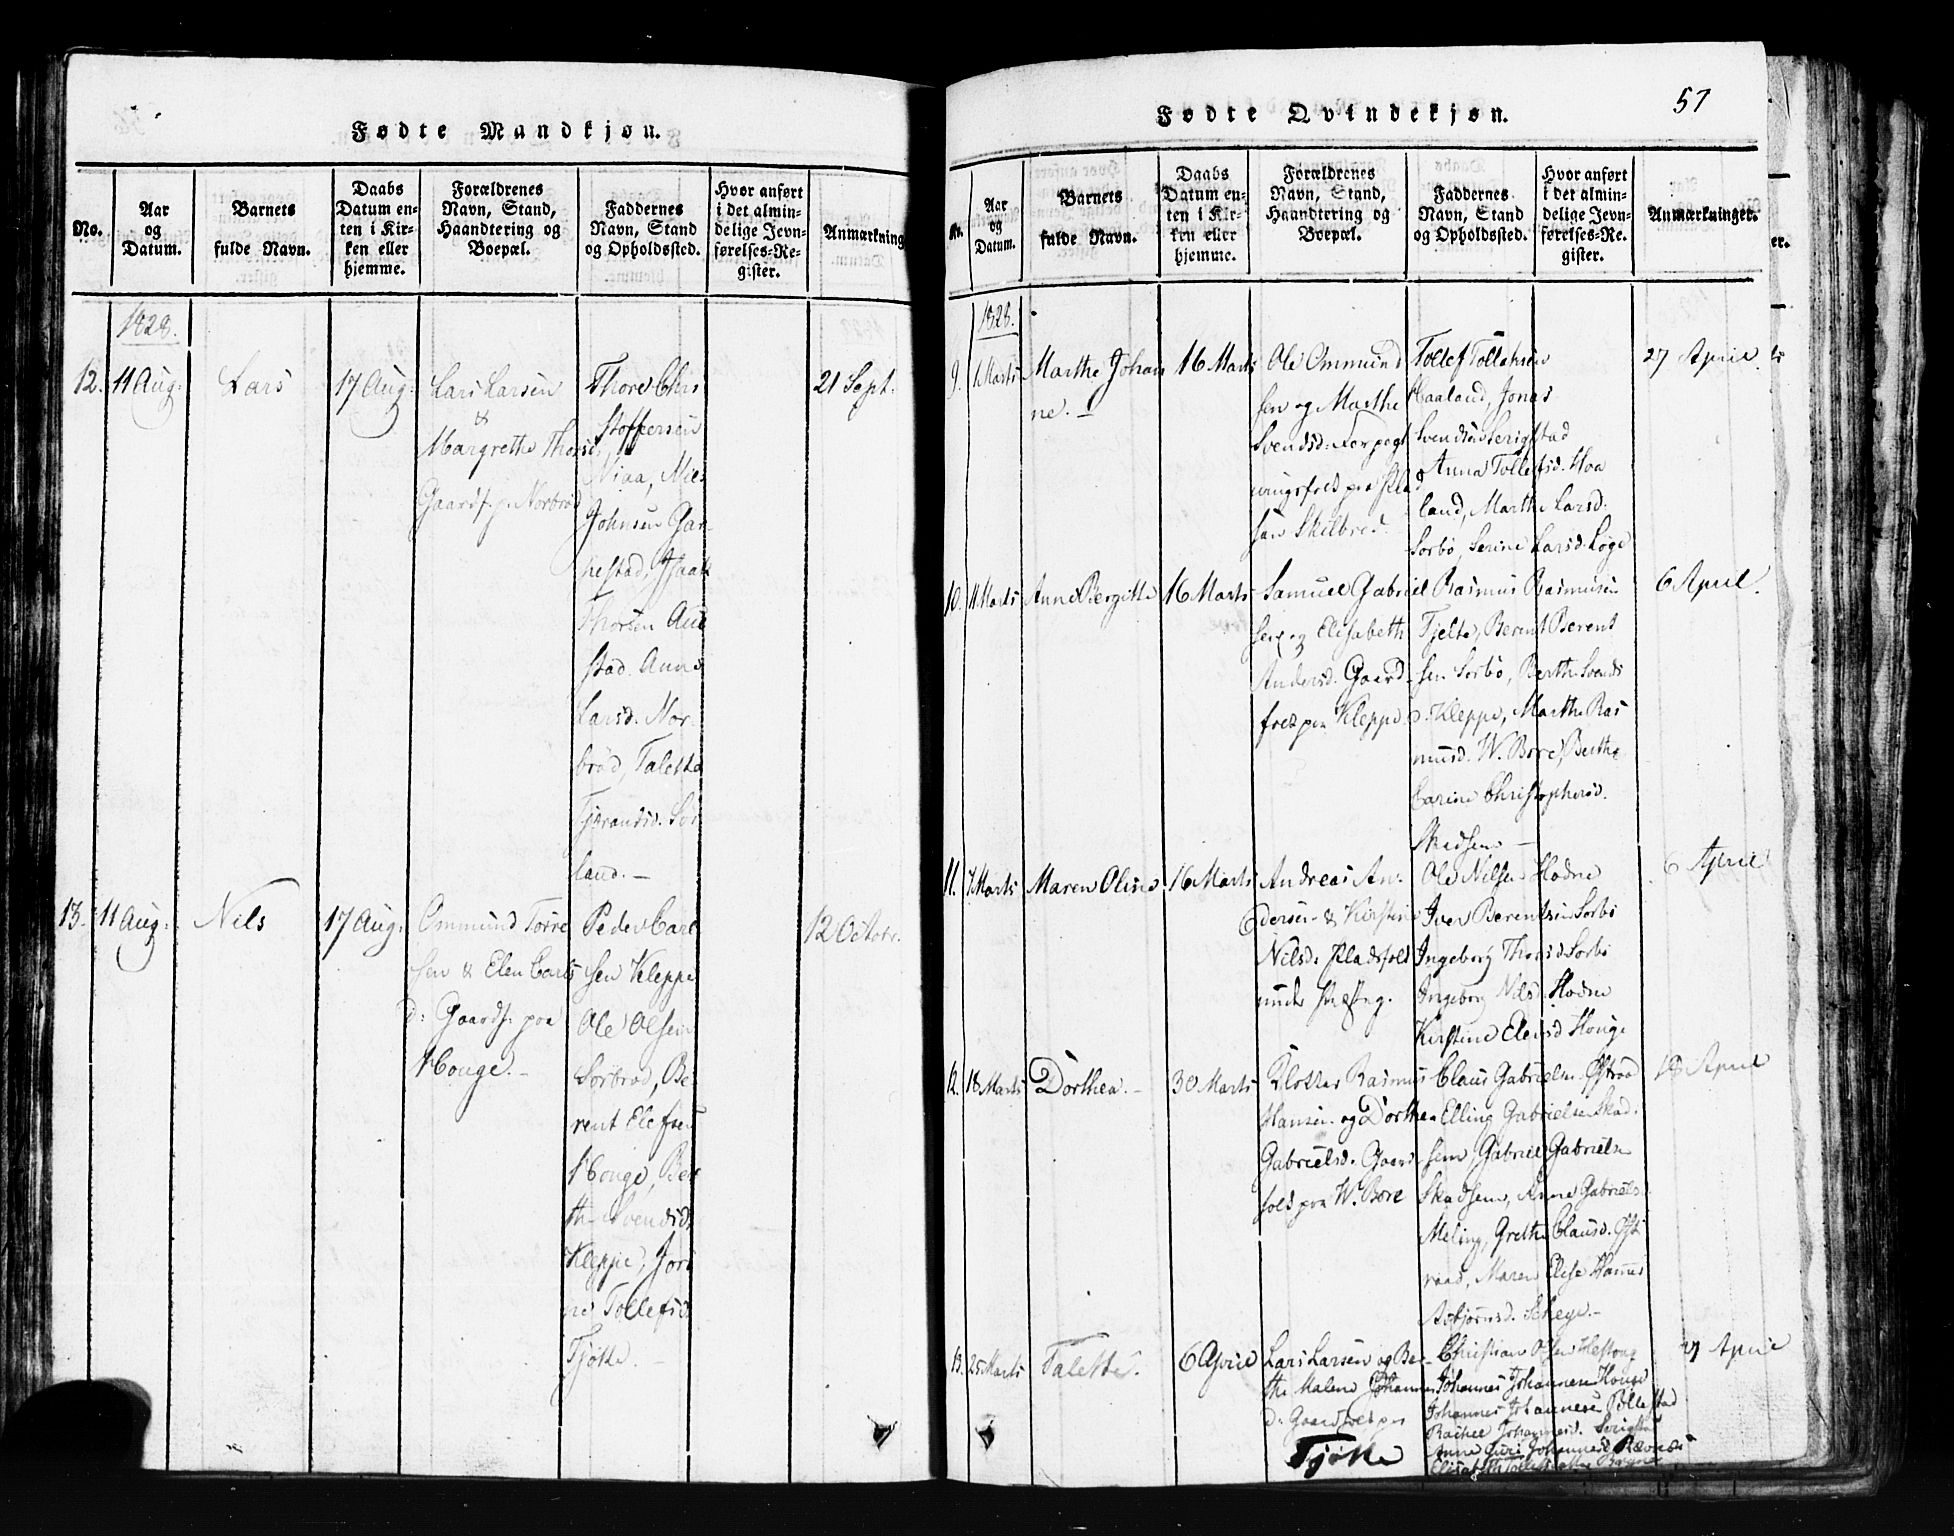 Fødte Mandkjøn.
No.
Aar
og
Datum.
Barnets
fulde Navn.
Daabs
Datum en-
ten i Kir-
ken eller
hjemme.
Forældrenes
Navn, Stand,
Haandtering og
Boepæl.
Faddernes
Navn, Stand
og Opholdssted.
Hvor anført
i det almin-
delige Jevn-
førelses-Re-
gister.
Anmærkning
1828.
12.
11 Aug:
Lars
17 Aug:
Lars Larsen
&
Margrethe Thorsd.
Gaardf. p. Norbrød
Thore Chri
stoffersen
Niaa, Niels
Johnsen Gar
pestad, Isaak
Thorsen Aue
stad. Anne
Larsd. Nor-
brød, Talette
Tjerandsd. Sør
land. —
21 Sept.
13.
11 Aug:
Nils
17 Aug:
Ommund Torre
sen & Elen Carls
d: Gaardf. paa
Houge. —
Peder Carl
sen Kleppe
Ole Olsen
Sørbrød, Be
rent Elefsen
Houge, Ber
the Svendsd.
Kleppe, Jori
ne Tollefsd.
Tjøtte. —
12 Octobr.
57
Fødte Qvindekjøn.
No.
Aar
og
Datum.
Barnets
fulde Navn.
Daabs
Datum en-
ten i Kir-
ken eller
hjemme.
Forældrenes
Navn, Stand,
Haandtering og
Boepæl.
Faddernes
Navn, Stand
og Opholdssted.
Hvor anført
i det almin-
delige Jevn-
førelses-Re-
gister.
Anmærkninger.
1828.
9.
Marts
Marthe Johan
ne. —
16 Marts
Ole Ommund
sen og Marthe
Svendsd. Forpagt
ningsfolk paa Plad
sen Skilbred.
Tollef Tollaksen
Haaland, Jonas
Svendsen Serigstad
Anna Tollefsd. Haa
land, Marthe Larsd.
Sørbø, Serine Larsd. Løge
27 April
10.
11 Marts
Anne Bergitte
16 Marts
Samuel Gabriel
sen og Elisabeth
Andersd. Gaard-
folk paa Kleppe
Rasmus Rasmusen
Tjelte, Berent Berent
sen Sørbø, Berthe Svends
d. Kleppe, Marthe Ras
musd. W. Bore, Berthe
Carine Christophersd.
Skadsem —
6 April.
11.
7 Marts
Maren Oline
16 Marts
Andreas An-
dersen & Kirstine
Nilsd. Pladsfolk
under
Ole Nilsen Hodne
Iver Berentsen Sørbø
Ingeborg Thorsd Sørbø
Ingeborg Nilsd. Hodne
Kirstine Elevsd Houge
6 April
12.
18 Marts
Dorthea. —
30 Marts
Klokker Rasmus
Hansen og Dorthea
Gabrielsd. Gaard
folk paa W. Bore
Claus Gabrielsen Østraad
Elling Gabrielsen Skad-
sem, Gabriel Gabrielsen
Skadsem, Anne Gabrielsd.
Meling, Grethe Clausd. Øst
raad, Maren Elise Hannes
Asbjørnsd. —
18 April
13.
25 Marts
Talette.
6 April
Lars Larsen og Ber-
the Malene Johannes
d. Gaardfolk paa
Tjøtte
Christian Olsen
Johannes Johannesen Houge
Johannes Johannesen Pollestad
Rachel Johannesd.
Anne Guri Johannesd.
Elisabeth
27 April